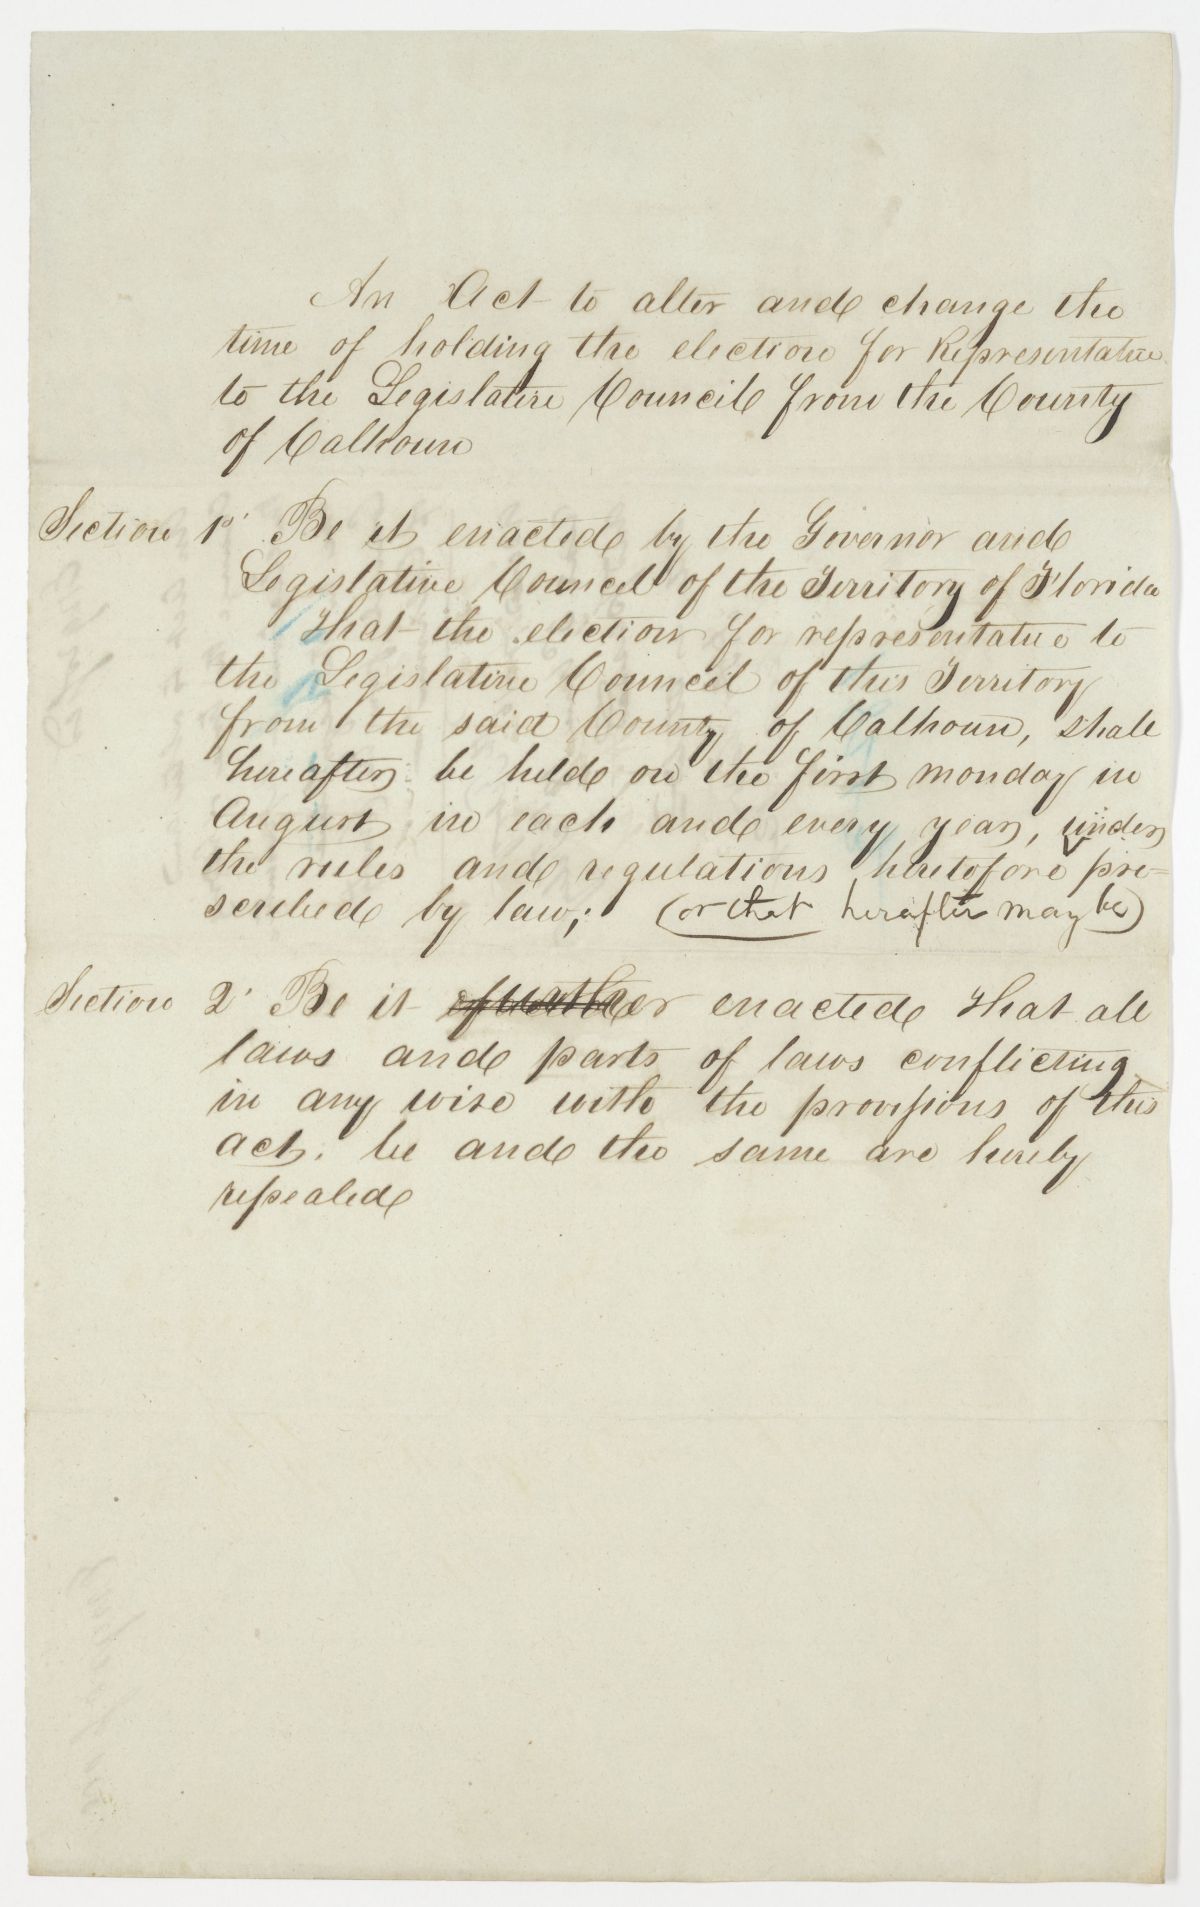 An Act to alter and change the
time of holding the election for Representative
to the Legislative Council from the County
of Calhoun
Section 1st Be it enacted by the Governor and
Legislative Council of the Territory of Florida
That the election for representative to
the Legislative Council of this Territory
from the said County of Calhoun, shall
hereafter be held on the first monday in
August in each and every year, under
the rules and regulations heretofore pre-
scribed by law; (or that herafter may be)
Section 2d Be it further enacted That all
laws and parts of laws conflicting
in any wise with the provisions of this
act, be and the same are hereby
repealed